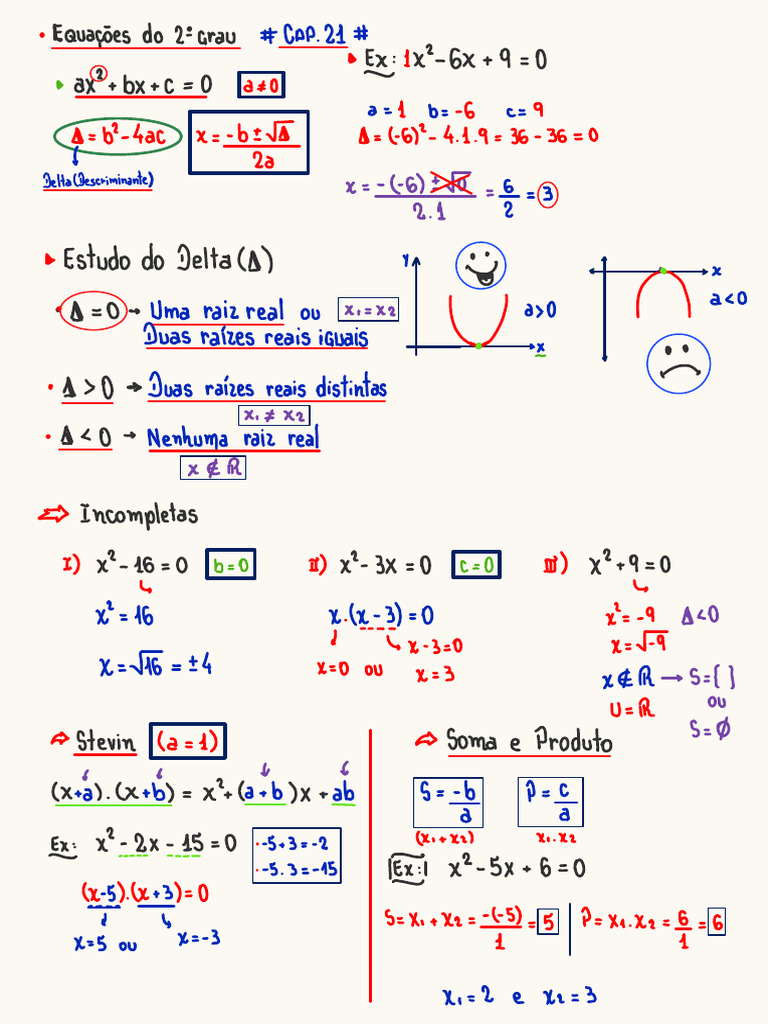 • Equações do 2º Grau # Cap. 21 #
ax² + bx + c = 0 a ≠ 0
Δ = b² - 4ac x = -b ± √Δ / 2a
Delta (Descriminante)
Ex: 1x² - 6x + 9 = 0
a = 1 b = -6 c = 9
Δ = (-6)² - 4.1.9 = 36 - 36 = 0
x = -(-6) ± √0 / 2.1 = 6/2 = 3
Estudo do Delta (Δ)
• Δ = 0 → Uma raiz real ou x₁ = x₂
Duas raízes reais iguais
• Δ > 0 → Duas raízes reais distintas
x₁ ≠ x₂
• Δ < 0 → Nenhuma raiz real
x ∉ ℝ
y
a > 0
x
x
a < 0
⇒ Incompletas
I) x² - 16 = 0 b = 0
x² = 16
x = √16 = ± 4
II) x² - 3x = 0 c = 0
x . (x - 3) = 0
x - 3 = 0
x = 0 ou x = 3
III) x² + 9 = 0
x² = -9 Δ < 0
x = √-9
x ∉ ℝ → S = { }
U = ℝ ou
S = ∅
⇒ Stevin (a = 1)
(x + a) . (x + b) = x² + (a + b)x + ab
Ex: x² - 2x - 15 = 0
• -5 + 3 = -2
• -5 . 3 = -15
(x - 5) . (x + 3) = 0
x = 5 ou x = -3
⇒ Soma e Produto
S = -b/a P = c/a
(x₁ + x₂) x₁ . x₂
Ex: x² - 5x + 6 = 0
S = x₁ + x₂ = -(-5)/1 = 5 P = x₁ . x₂ = 6/1 = 6
x₁ = 2 e x₂ = 3